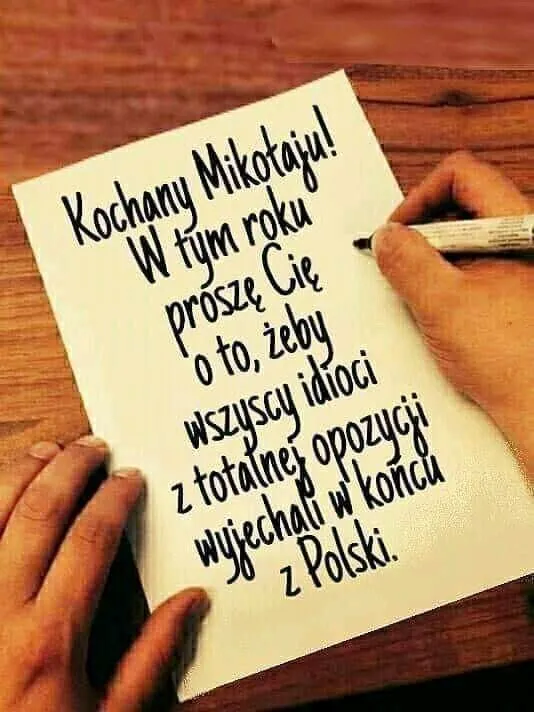 Kochany Mikołaju!
W tym roku
proszę Cię
o to, żeby
wszyscy idioci
z totalnej opozycji
wyjechali w końcu
z Polski.